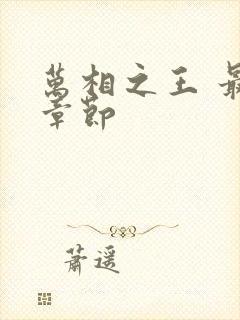 萬相之王 最
章節
萧遥